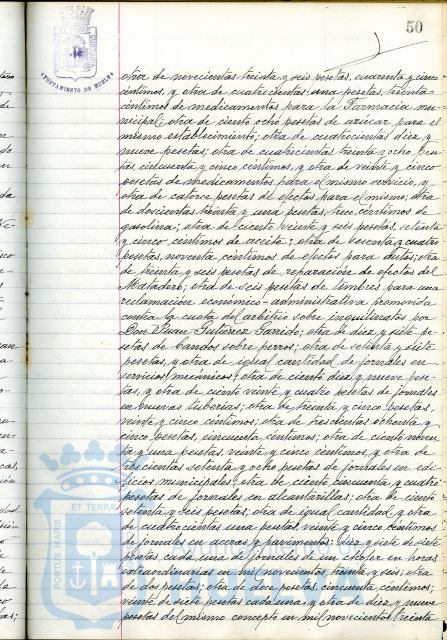 50
AYUNTAMIENTO DE HUELVA
otra de novecientas treinta y seis pesetas, cuarenta y cinco
céntimos, y otra de cuatrocientas una pesetas treinta
céntimos de medicamentos para la Farmacia mu-
nicipal; otra de ciento ocho pesetas de azúcar para el
mismo establecimiento; otra de cuatrocientas diez y
nueve pesetas; otra de cuatrocientas treinta y ocho pese-
tas, cincuenta y cinco céntimos, y otra de veinte y cinco
pesetas de medicamentos para el mismo servicio, y
otra de catorce pesetas de efectos para el mismo; otra
de doscientas treinta y una pesetas, trece céntimos de
gasolina; otra de ciento veinte y seis pesetas, setenta
y cinco céntimos de aceite; otra de sesenta y cuatro
pesetas, noventa céntimos de efectos para autos; otra
de treinta y seis pesetas de reparación de efectos del
Matadero; otra de seis pesetas de timbres para una
reclamación económico-administrativa promovida
contra la cuota del arbitrio sobre inquilinatos por
Don Juan Gutiérrez Garrido; otra de diez y siete pe-
setas de bandos sobre perros; otra de setenta y siete
pesetas, y otra de igual cantidad de jornales en
servicios mecánicos; otra de ciento diez y nueve pese-
tas, y otra de ciento veinte y cuatro pesetas de jornales
en nuevas tuberías; otra de treinta y cinco pesetas,
veinte y cinco céntimos; otra de trescientas ochenta y
cinco pesetas, cincuenta céntimos; otra de ciento noven-
ta y una pesetas, veinte y cinco céntimos, y otra de
trescientas setenta y ocho pesetas de jornales en edi-
ficios municipales; otra de ciento cincuenta y cuatro
pesetas de jornales en alcantarillas; otra de ciento
setenta y seis pesetas; otra de igual cantidad y otra
de cuatrocientas una pesetas veinte y cinco céntimos
de jornales en aceras y pavimentos; diez y siete de siete
pesetas cada una de jornales de un chófer en horas
extraordinarias en mil novecientos treinta y seis; otra
de dos pesetas; otra de doce pesetas, cincuenta céntimos;
veinte de siete pesetas cada una, y otra de diez y nueve
pesetas del mismo concepto en mil novecientos treinta
PORTUS MARIS ET TERRAE
HUELVA